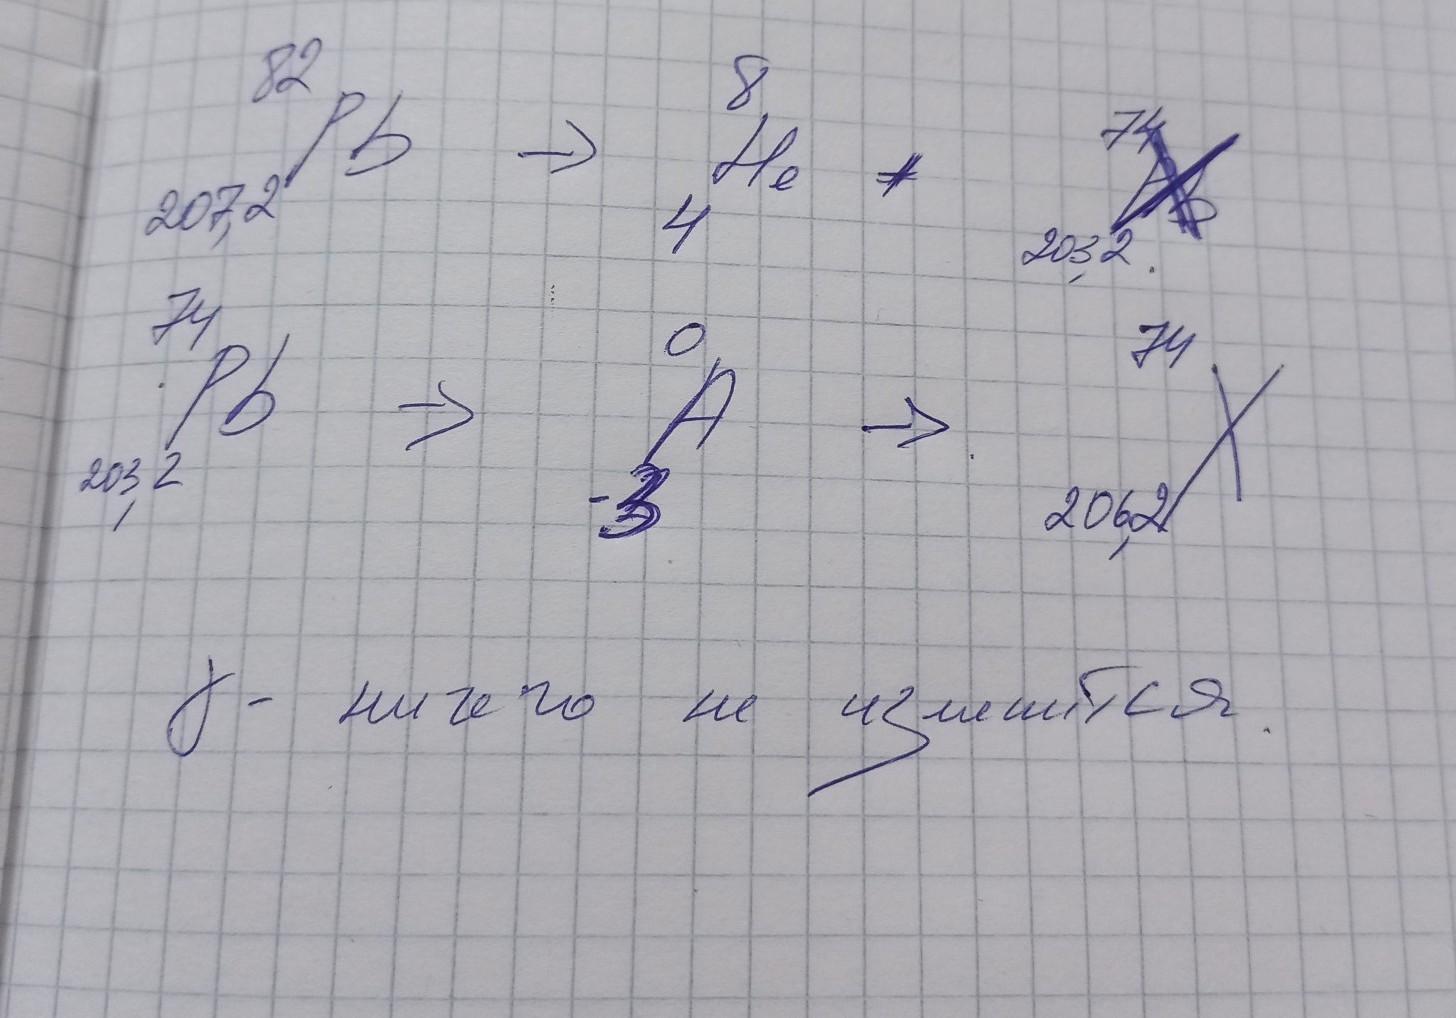 82 Pb 207,2 → 8 He 4 + 74 203,2
74 Pb 203,2 → 0 A -3 → 74 X 206,2
γ - ничего не изменится.